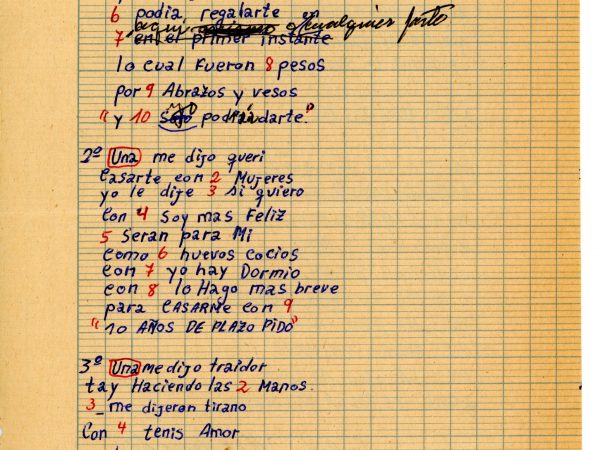 6 podia regalarte
aquí o en cualquier parte
7 en el primer instante
lo cual Fueron 8 pesos
por 9 Abrazos y vesos
"y 10 podria darte."
2º Una me dijo queri
Casarte con 2 Mujeres
yo le dije 3 si quiero
Con 4 Soy mas Feliz
5 Seran para Mi
Como 6 huevos cocios
con 7 yo hay Dormio
con 8 lo Hago mas breve
para CASARMe con 9
"10 AÑOS DE PLAZO PIDO"
3º Una me dijo traidor
tay Haciendo las 2 Manos.
3_ me dijeron tirano
Con 4 tenis Amor